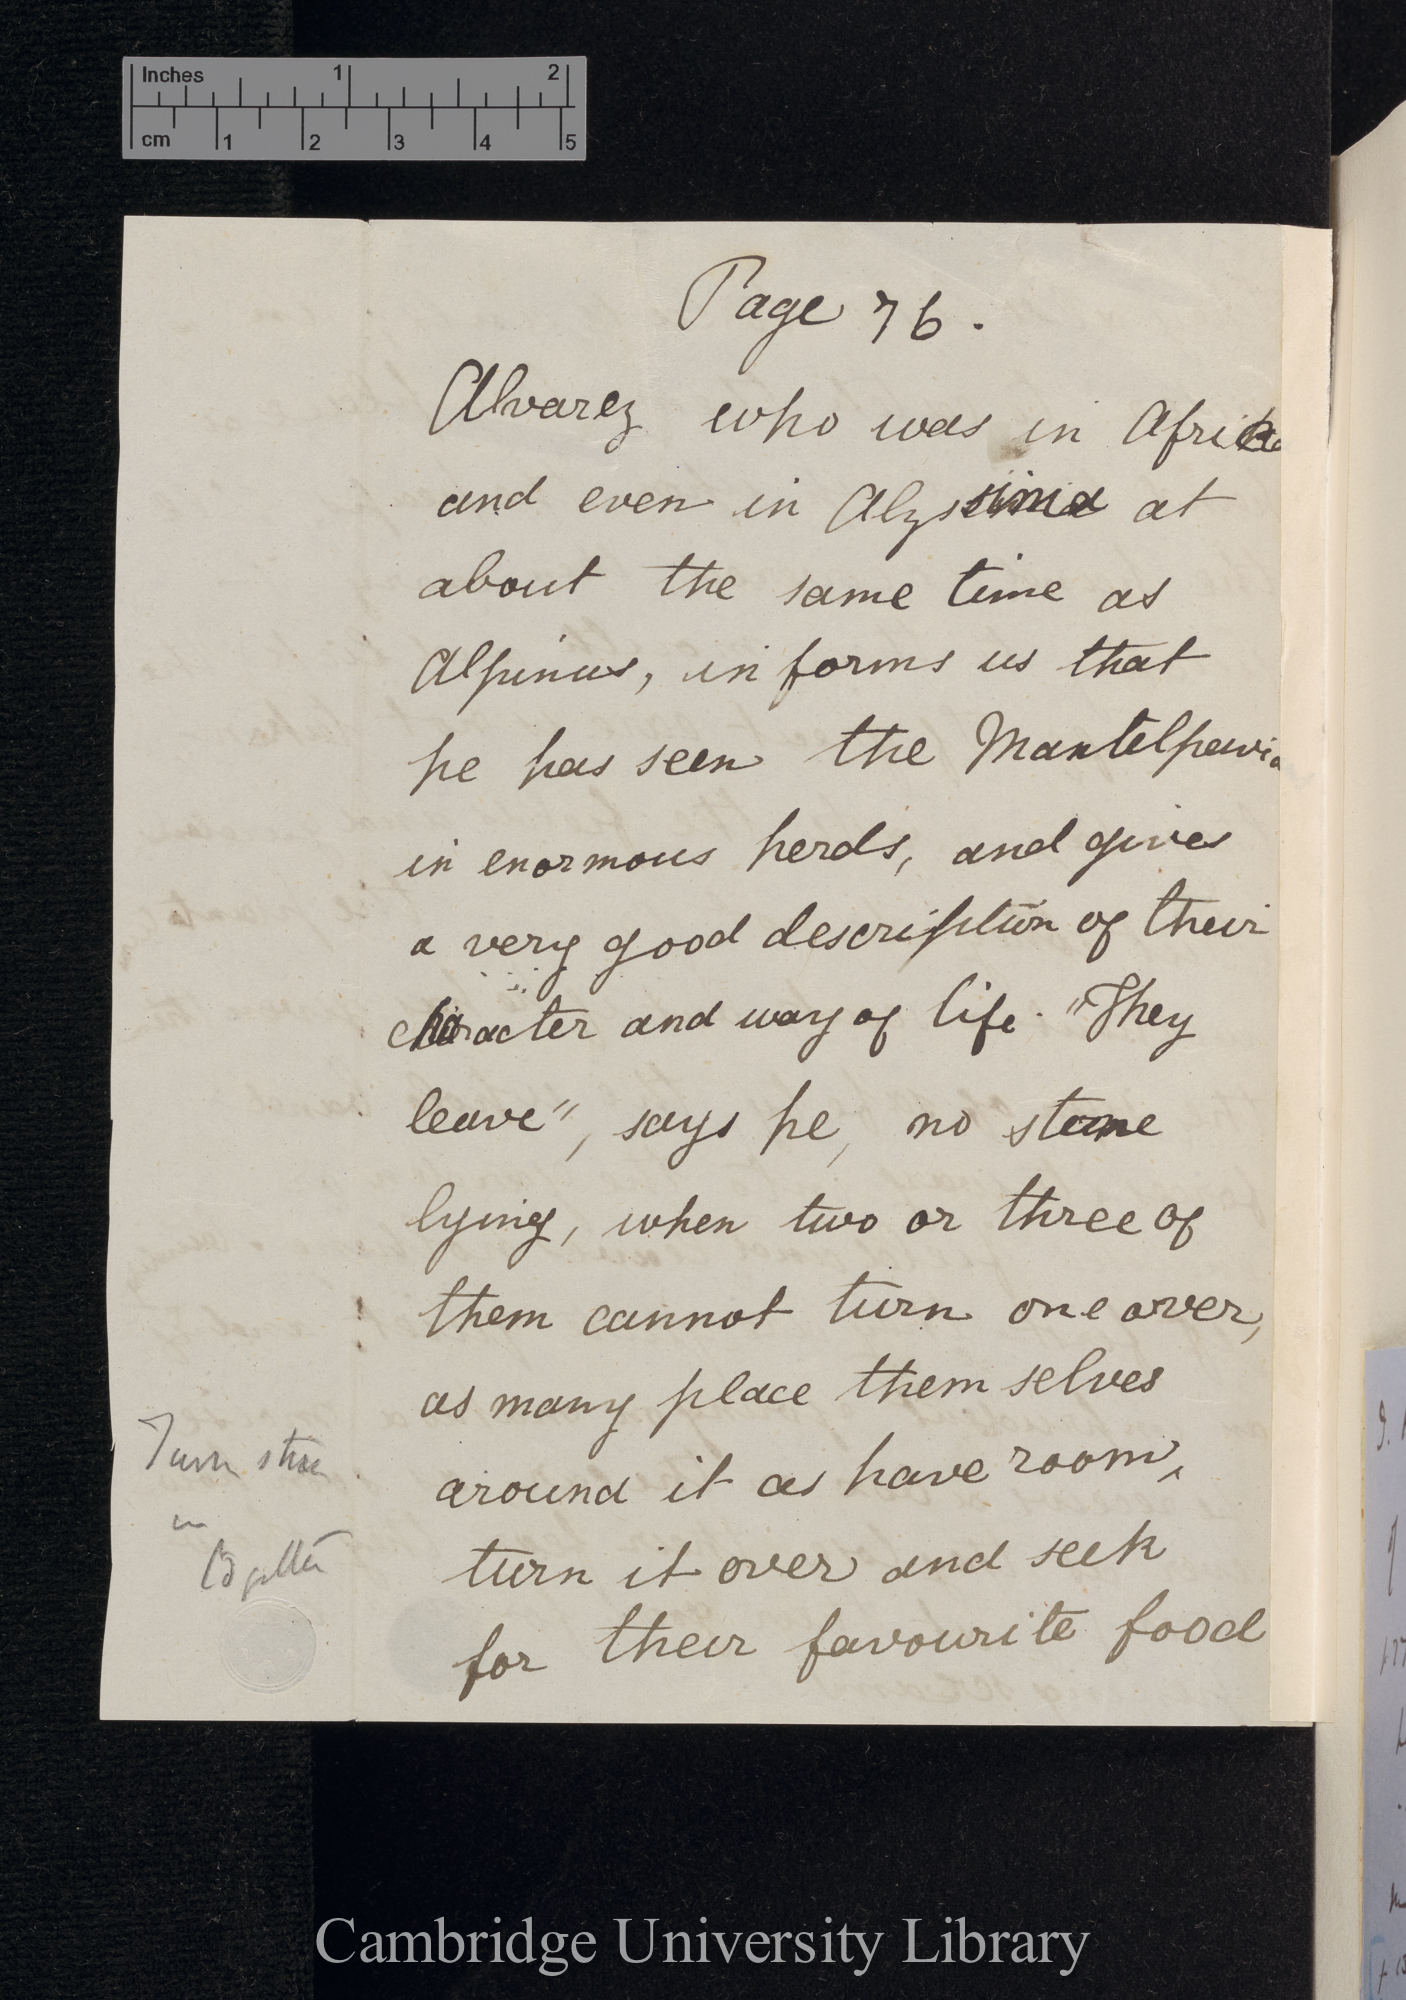 Inches 1 2
cm 1 2 3 4 5
Page 76.
Alvarez who was in Africa
and even in Alyssinia at
about the same time as
Alpinus, informs us that
he has seen the Mantelpavia
in enormous herds, and gives
a very good description of their
character and way of life. "They
leave", says he, no stone
lying, when two or three of
them cannot turn one over,
as many place themselves
around it as have room,
turn it over and seek
for their favourite food
Turn stones
in
Cambridge University Library